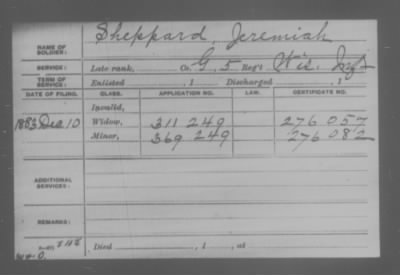 Sheppard, Jeremiah
NAME OF SOLDIER:
SERVICE: Late rank, Co. G, 5 Reg't Wis. Inf
TERM OF SERVICE: Enlisted , 1 Discharged , 1
DATE OF FILING. CLASS. APPLICATION NO. LAW. CERTIFICATE NO.
Invalid,
1883 Dec 10 Widow, 311 249 276 057
Minor, 369 249 276 082
ADDITIONAL SERVICES:
REMARKS:
Died , 1 , at